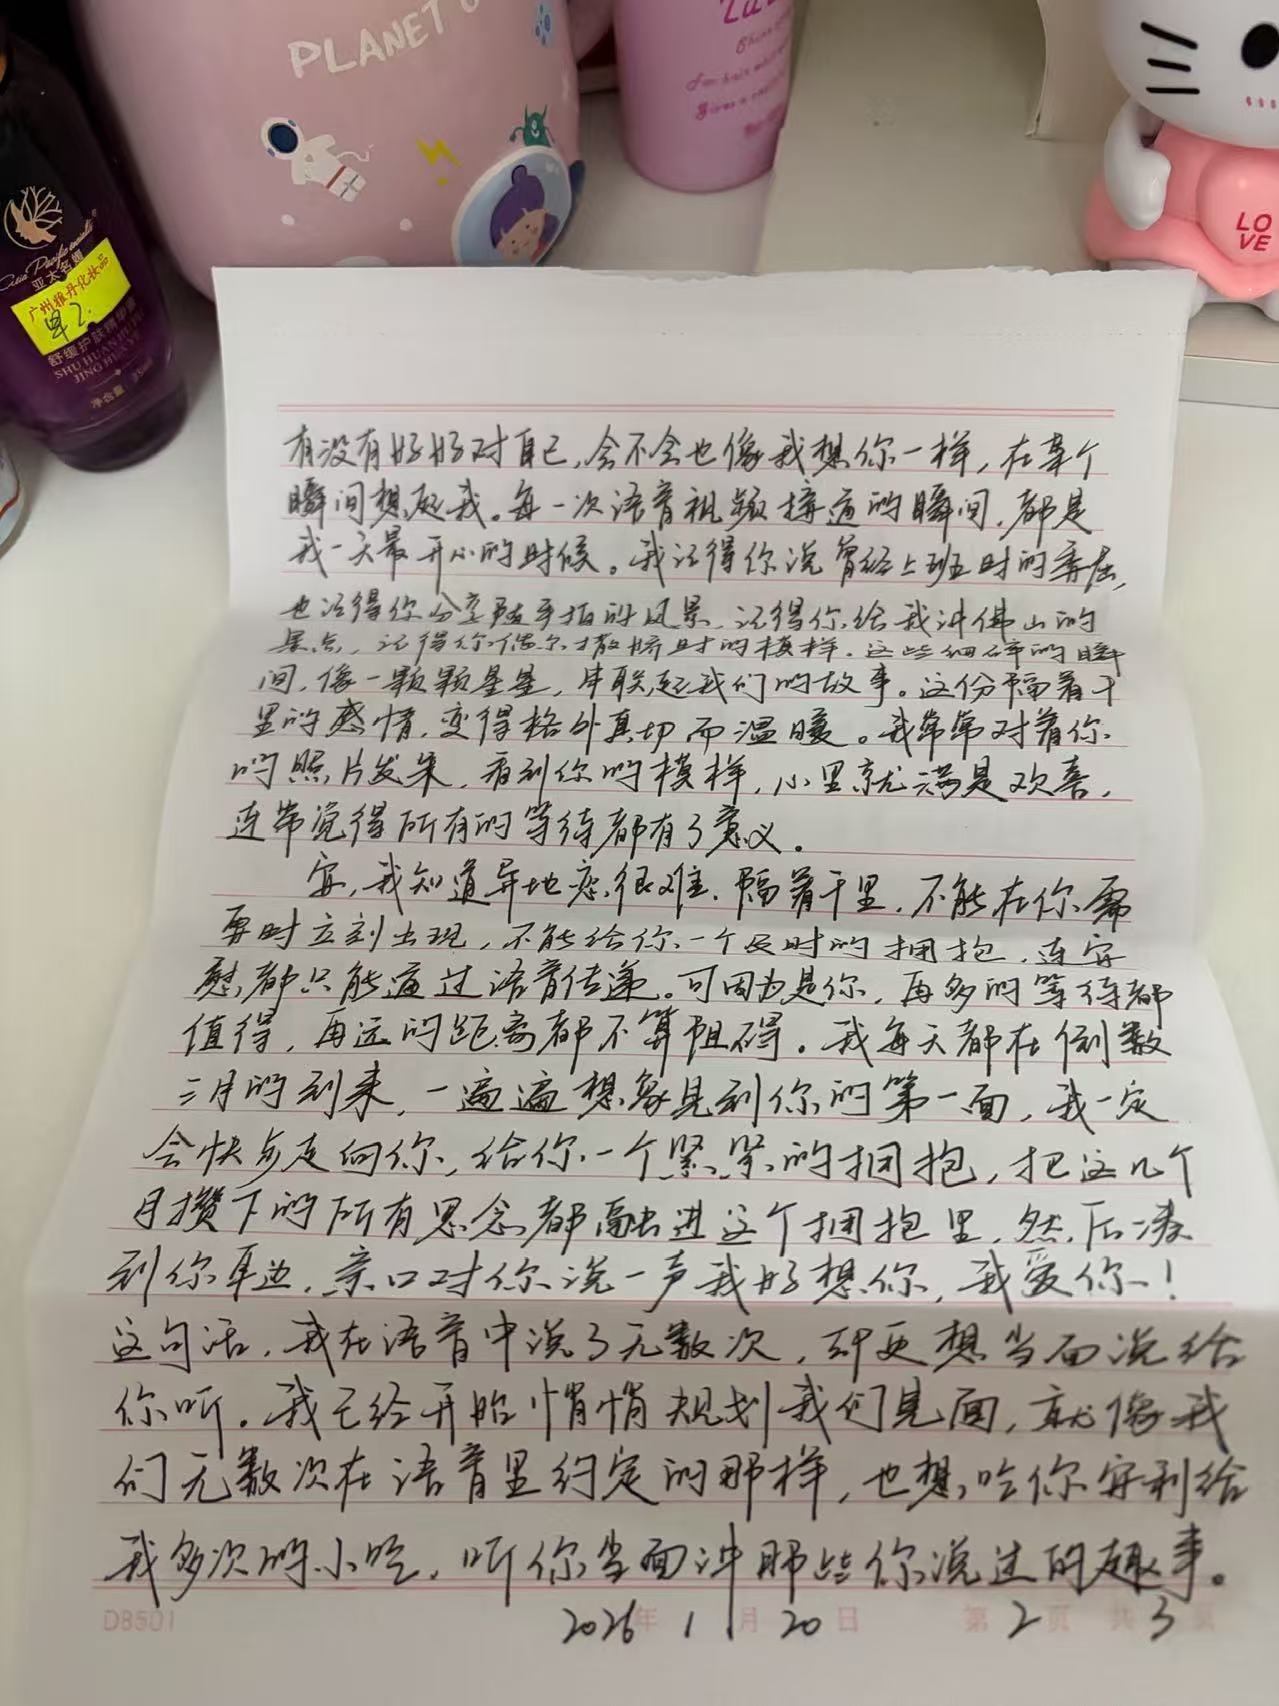 PLANET
亚太名媛
广州雅丹化妆品
舒缓护肤精华露
SHU HUAN HU FU
JING HUA YE
净含量
LO
VE
有没有好好对自己，会不会也像我想你一样，在某个
瞬间想起我。每一次语音视频接通的瞬间，都是
我一天最开心的时候。我记得你说曾经上班时的委屈，
也记得你分享随手拍的风景，记得你给我讲佛山的
景点，记得你偶尔撒娇时的模样，这些细碎的瞬
间，像一颗颗星星，串联起我们的故事。这份隔着千
里的感情，变得格外真切而温暖。我常常对着你
的照片发呆，看到你的模样，心里就满是欢喜，
连带觉得所有的等待都有了意义。
我知道异地恋很难，隔着千里，不能在你需
要时立刻出现，不能给你一个及时的拥抱，连安
慰都只能通过语音传递。可因为是你，再多的等待都
值得，再远的距离都不算阻碍。我每天都在倒数
三月的到来，一遍遍想象见到你的第一面，我一定
会快步走向你，给你一个紧紧的拥抱，把这几个
月攒下的所有思念都融进这个拥抱里，然后凑
到你耳边，亲口对你说一声我好想你，我爱你！
这句话，我在语音中说了无数次，却更想当面说给
你听。我已经开始悄悄规划我们见面，就像我
们无数次在语音里约定的那样，也想吃你安利给
我多次的小吃，听你当面讲那些你说过的趣事。
D8501 2026年1月20日 第2页 共3页